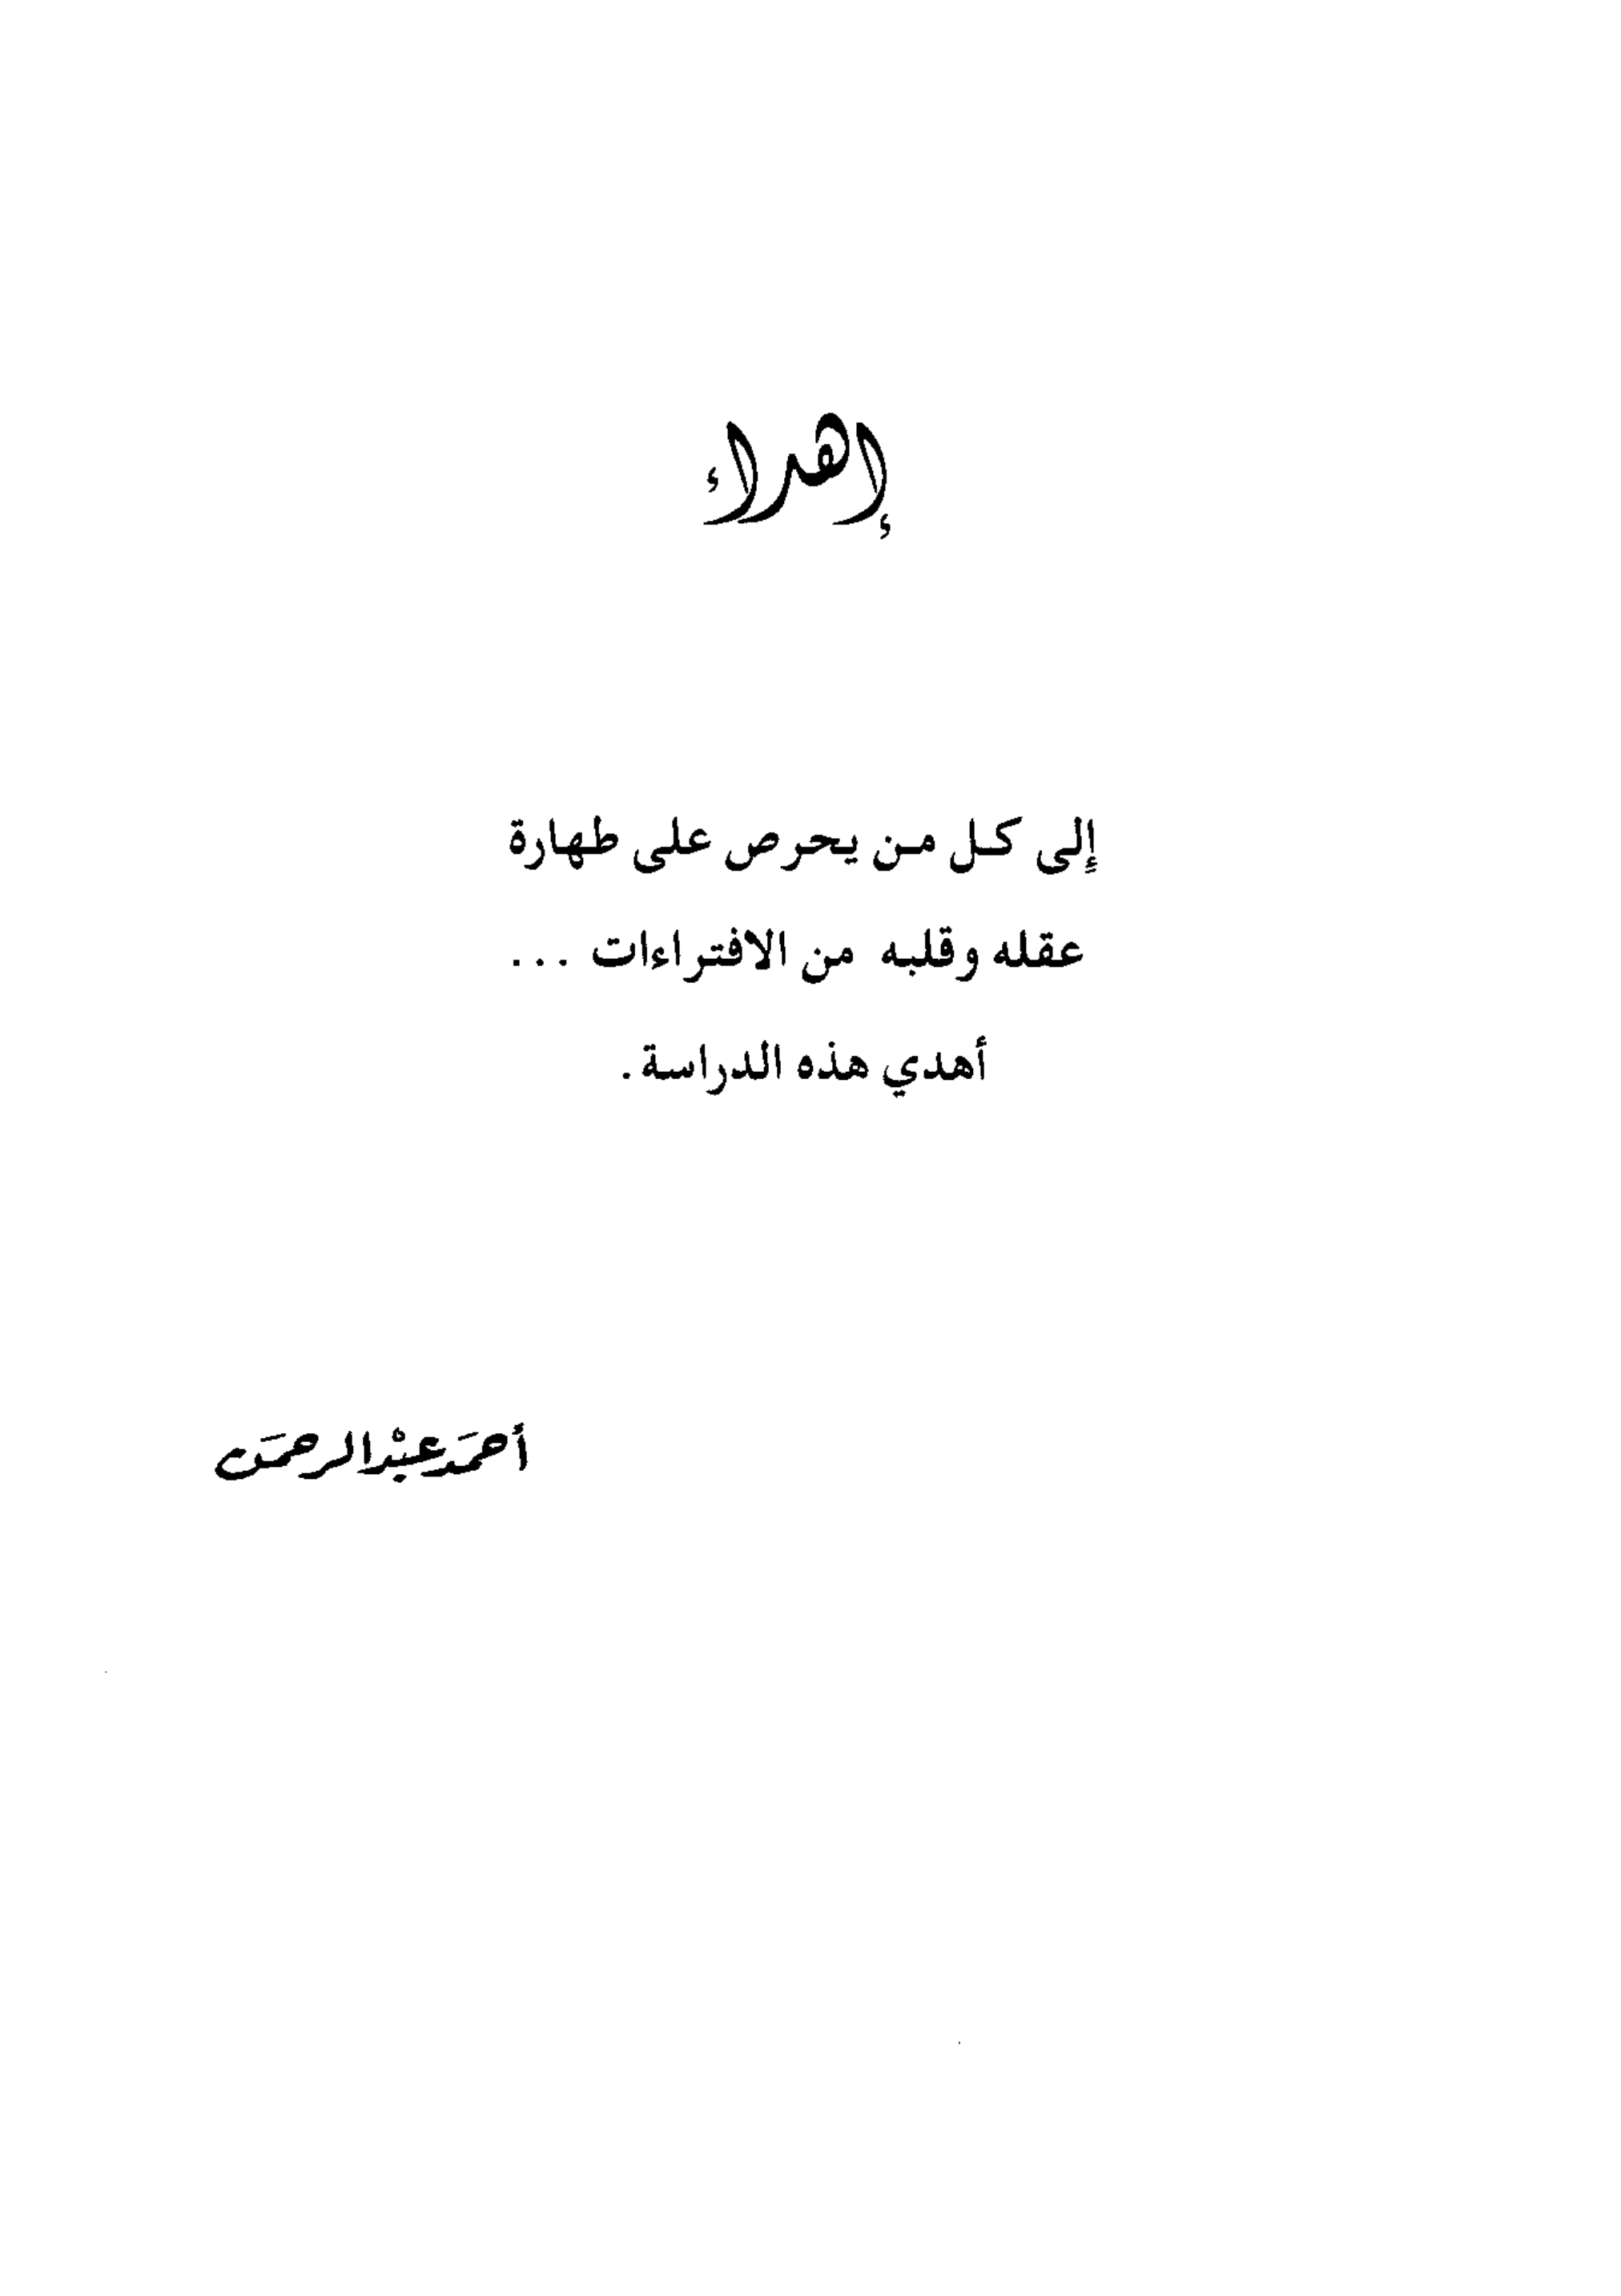 إهداء
إِلى كل من يحرص على طهارة
عقله وقلبه من الافتراءات ...
أهدي هذه الدراسة.
أحمَد عبْد الرحمَن